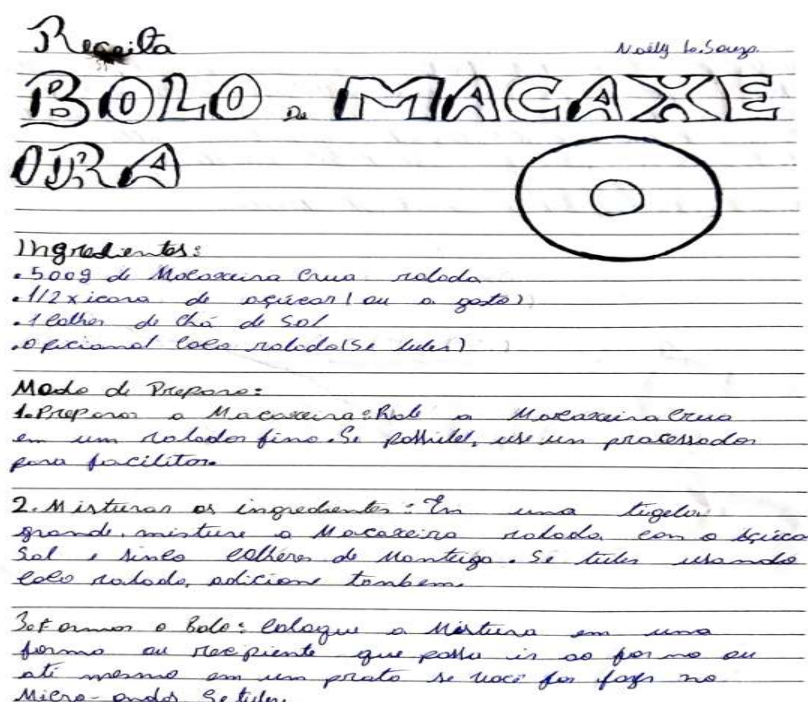 Receita
Noély L. Souza
BOLO De MACAXE
IRA
Ingredientes:
.500g de Macaxeira Crua ralada
.1/2 xicara de açúcar (ou a gosto)
.1 colher de chá de Sal
.opicional coco ralado (se tiver)
Modo de Preparo:
1.Preparar a Macaxeira: Rale a Macaxeira Crua
em um ralador fino. Se possivel, use um processador
para facilitar.
2.Misturar os ingredientes: Em uma tigela
grande, misture a Macaxeira ralada, com o açúca
Sal e sinco colheres de Manteiga. Se tiver usando
coco ralado, adicione tanbem.
3.Formar o Bolo: Coloque a Mistura em uma
forma ou recipiente que possa ir ao forno ou
até mesmo em um prato se você for fazer no
Micro-ondas. Se tiver.